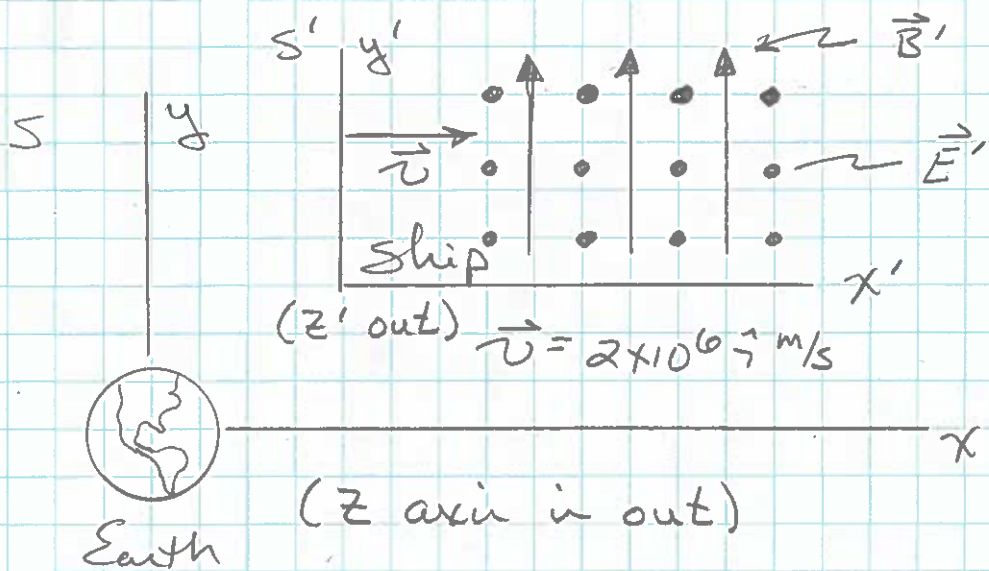 S' y' B⃗'
S y
v⃗ E⃗'
Ship
x'
(z' out) v⃗ = 2×10⁶ î m/s
x
(z axis is out)
Earth